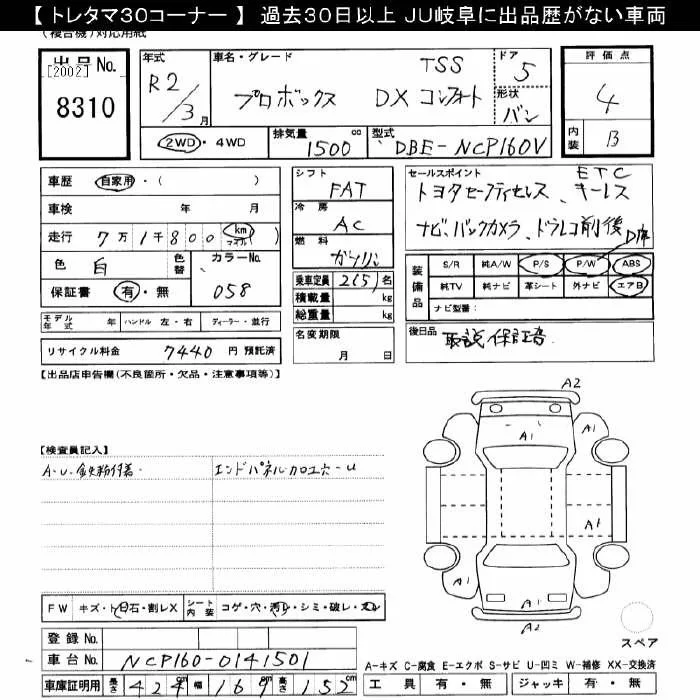 【 トレタマ30コーナー 】 過去30日以上 JU岐阜に出品歴がない車両
(複合機)対応用紙
出品No.
[2002]
8310
年式 R2/3月
車名・グレード プロボックス DX コンフォート TSS
ドア 5
形状 バン
評価点 4
内装 B
2WD・4WD
排気量 1500 cc
型式 DBE-NCP160V
車歴 自家用・( )
車検 年 月
走行 7万1千800 km マイル ( )
色 白 色替
カラーNo. 058
保証書 有・無
モデル年式 年 ハンドル 左・右 ディーラー・並行
リサイクル料金 7440 円 預託済
シフト FAT
冷房 AC
燃料 ガソリン
乗車定員 2(5)名
積載量 kg
総重量 kg
名変期限 月 日
セールスポイント ETC
トヨタセーフティセンス、キーレス
ナビ、バックカメラ、ドラレコ前後
装備品 S/R 純A/W P/S P/W ABS
純TV 純ナビ 革シート 外ナビ エアB
ナビ型番:
後日品 取説 保証書
【出品店申告欄(不良箇所・欠品・注意事項等)】
【検査員記入】
A・U・鉄粉付着
エンドパネル加工穴・U
A2
A1
A1
A1
A1
A1
A2
スペア
FW キズ・ト・飛石・割レX シート内装 コゲ・穴・汚レ・シミ・破レ・スレ
登録No.
車台No. NCP160-0141501
車庫証明用 長さ 424 cm 幅 169 cm 高さ 152 cm
A-キズ C-腐食 E-エクボ S-サビ U-凹ミ W-補修 XX-交換済
工具 有・無 ジャッキ 有・無